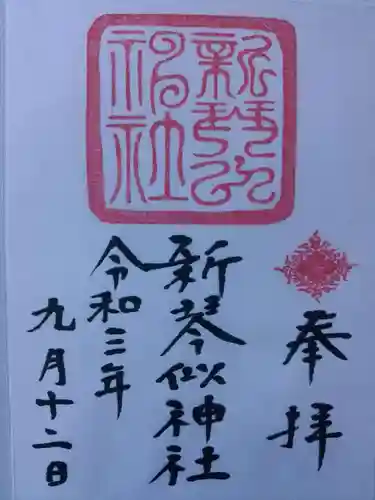 奉拝
新琴似神社
令和三年
九月十二日
新琴似神社